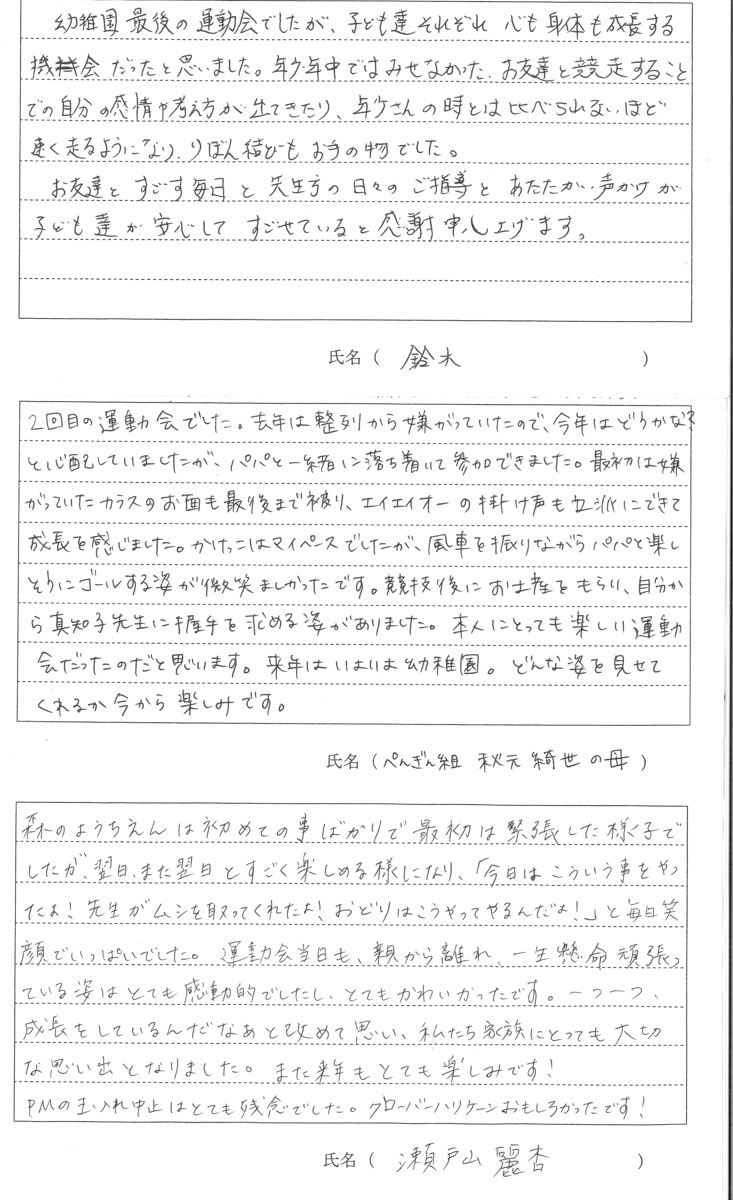 幼稚園最後の運動会でしたが、子ども達それぞれ 心も身体も成長する
機会だったと思いました。年少年中ではみせなかった、お友達と競走すること
での自分の感情や考え方が出てきたり、年少さんの時とは比べられないほど
速く走るようになり、りぼん結びもお手の物でした。
お友達とすごす毎日と先生方の日々のご指導とあたたかい声かけが
子ども達が安心してすごせていると感謝申し上げます。
氏名（ 鈴木 ）
2回目の運動会でした。去年は整列から嫌がっていたので、今年はどうかな?
と心配していましたが、パパと一緒に落ち着いて参加できました。最初は嫌
がっていたカラスのお面も最後まで被り、エイエイオーの掛け声も立派にできて
成長を感じました。かけっこはマイペースでしたが、風車を振りながらパパと楽し
そうにゴールする姿が微笑ましかったです。競技後にお土産をもらい、自分か
ら真知子先生に握手を求める姿がありました。本人にとっても楽しい運動
会だったのだと思います。来年はいよいよ幼稚園。どんな姿を見せて
くれるか今から楽しみです。
氏名（ぺんぎん組 秋元綺世の母）
森のようちえんは初めての事ばかりで最初は緊張した様子で
したが、翌日、また翌日とすごく楽しめる様になり、「今日はこういう事をやっ
たよ!先生がムシを取ってくれたよ!おどりはこうやってやるんだよ!」と毎日笑
顔でいっぱいでした。運動会当日も、親から離れ、一生懸命頑張っ
ている姿はとても感動的でしたし、とてもかわいかったです。一つ一つ、
成長をしているんだなあと改めて思い、私たち家族にとっても大切
な思い出となりました。また来年もとても楽しみです!
PMの玉入れ中止はとても残念でした。クローバーハリケーンおもしろかったです!
氏名（ 瀬戸山 麗杏 ）